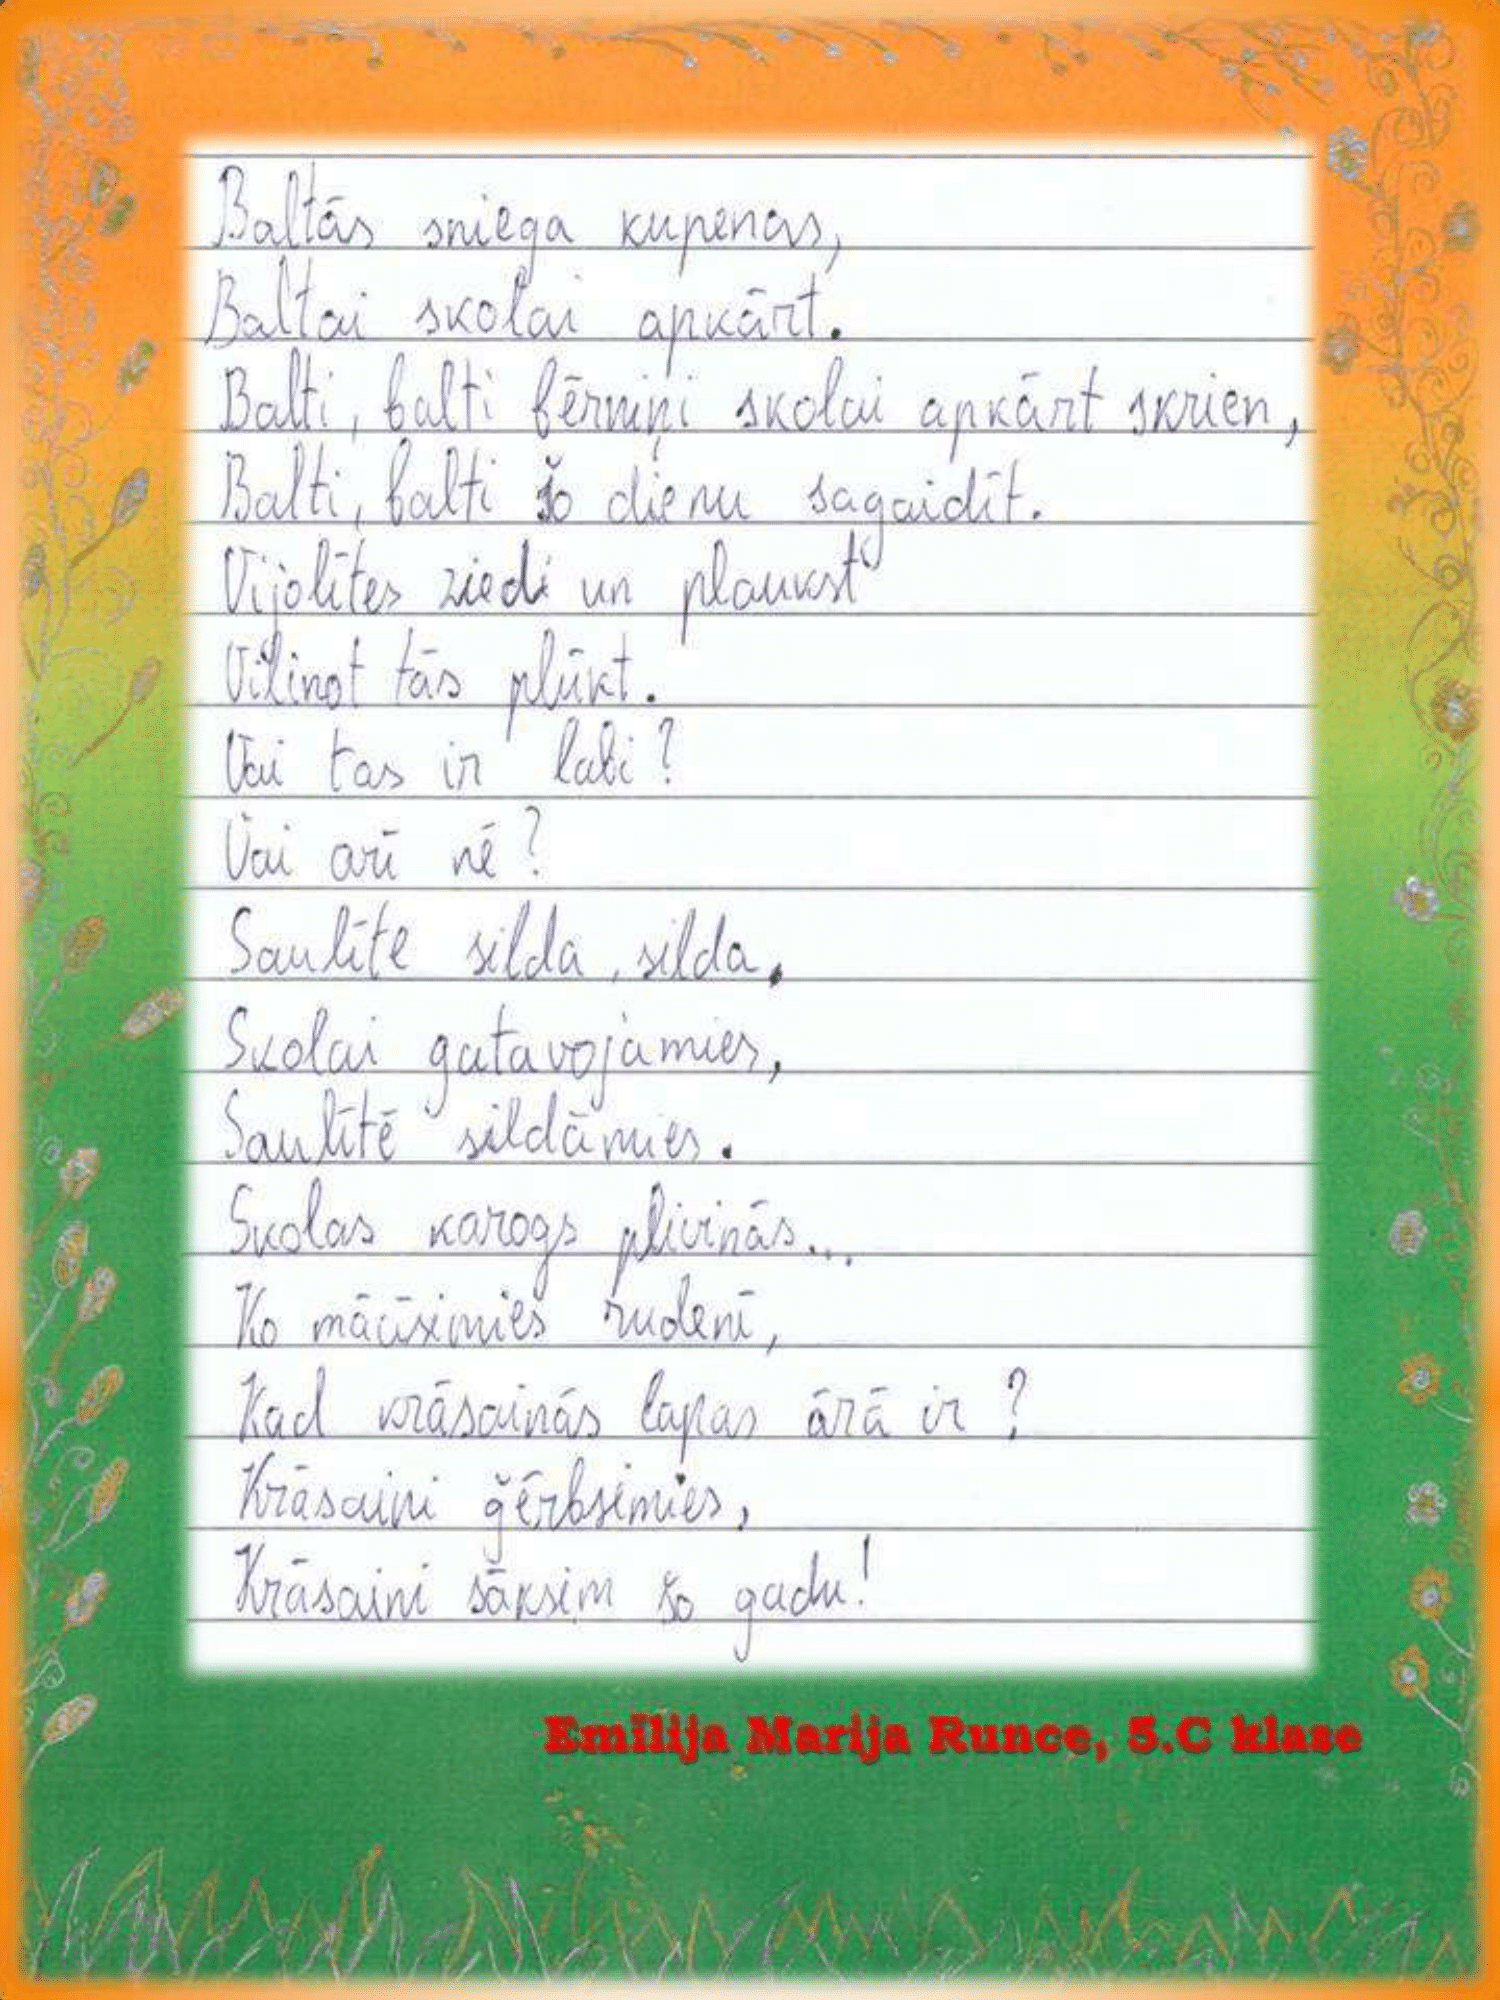 Baltās sniega kupenas,
Baltai skolai apkārt.
Balti, balti bērniņi skolai apkārt skrien,
Balti, balti šo dienu sagaidīt.
Vijolītes ziedi un plaukst
Vilinot tās plūkt.
Vai tas ir labi?
Vai arī nē?
Saulīte silda, silda.
Skolai gatavojamies,
Saulītē sildāmies.
Skolas karogs plivinās...
Ko mācīsimies rudenī,
Kad krāsainās lapas ārā ir?
Krāsaini ģērbsimies,
Krāsaini sāksim šo gadu!
Emīlija Marija Runce, 5.C klase